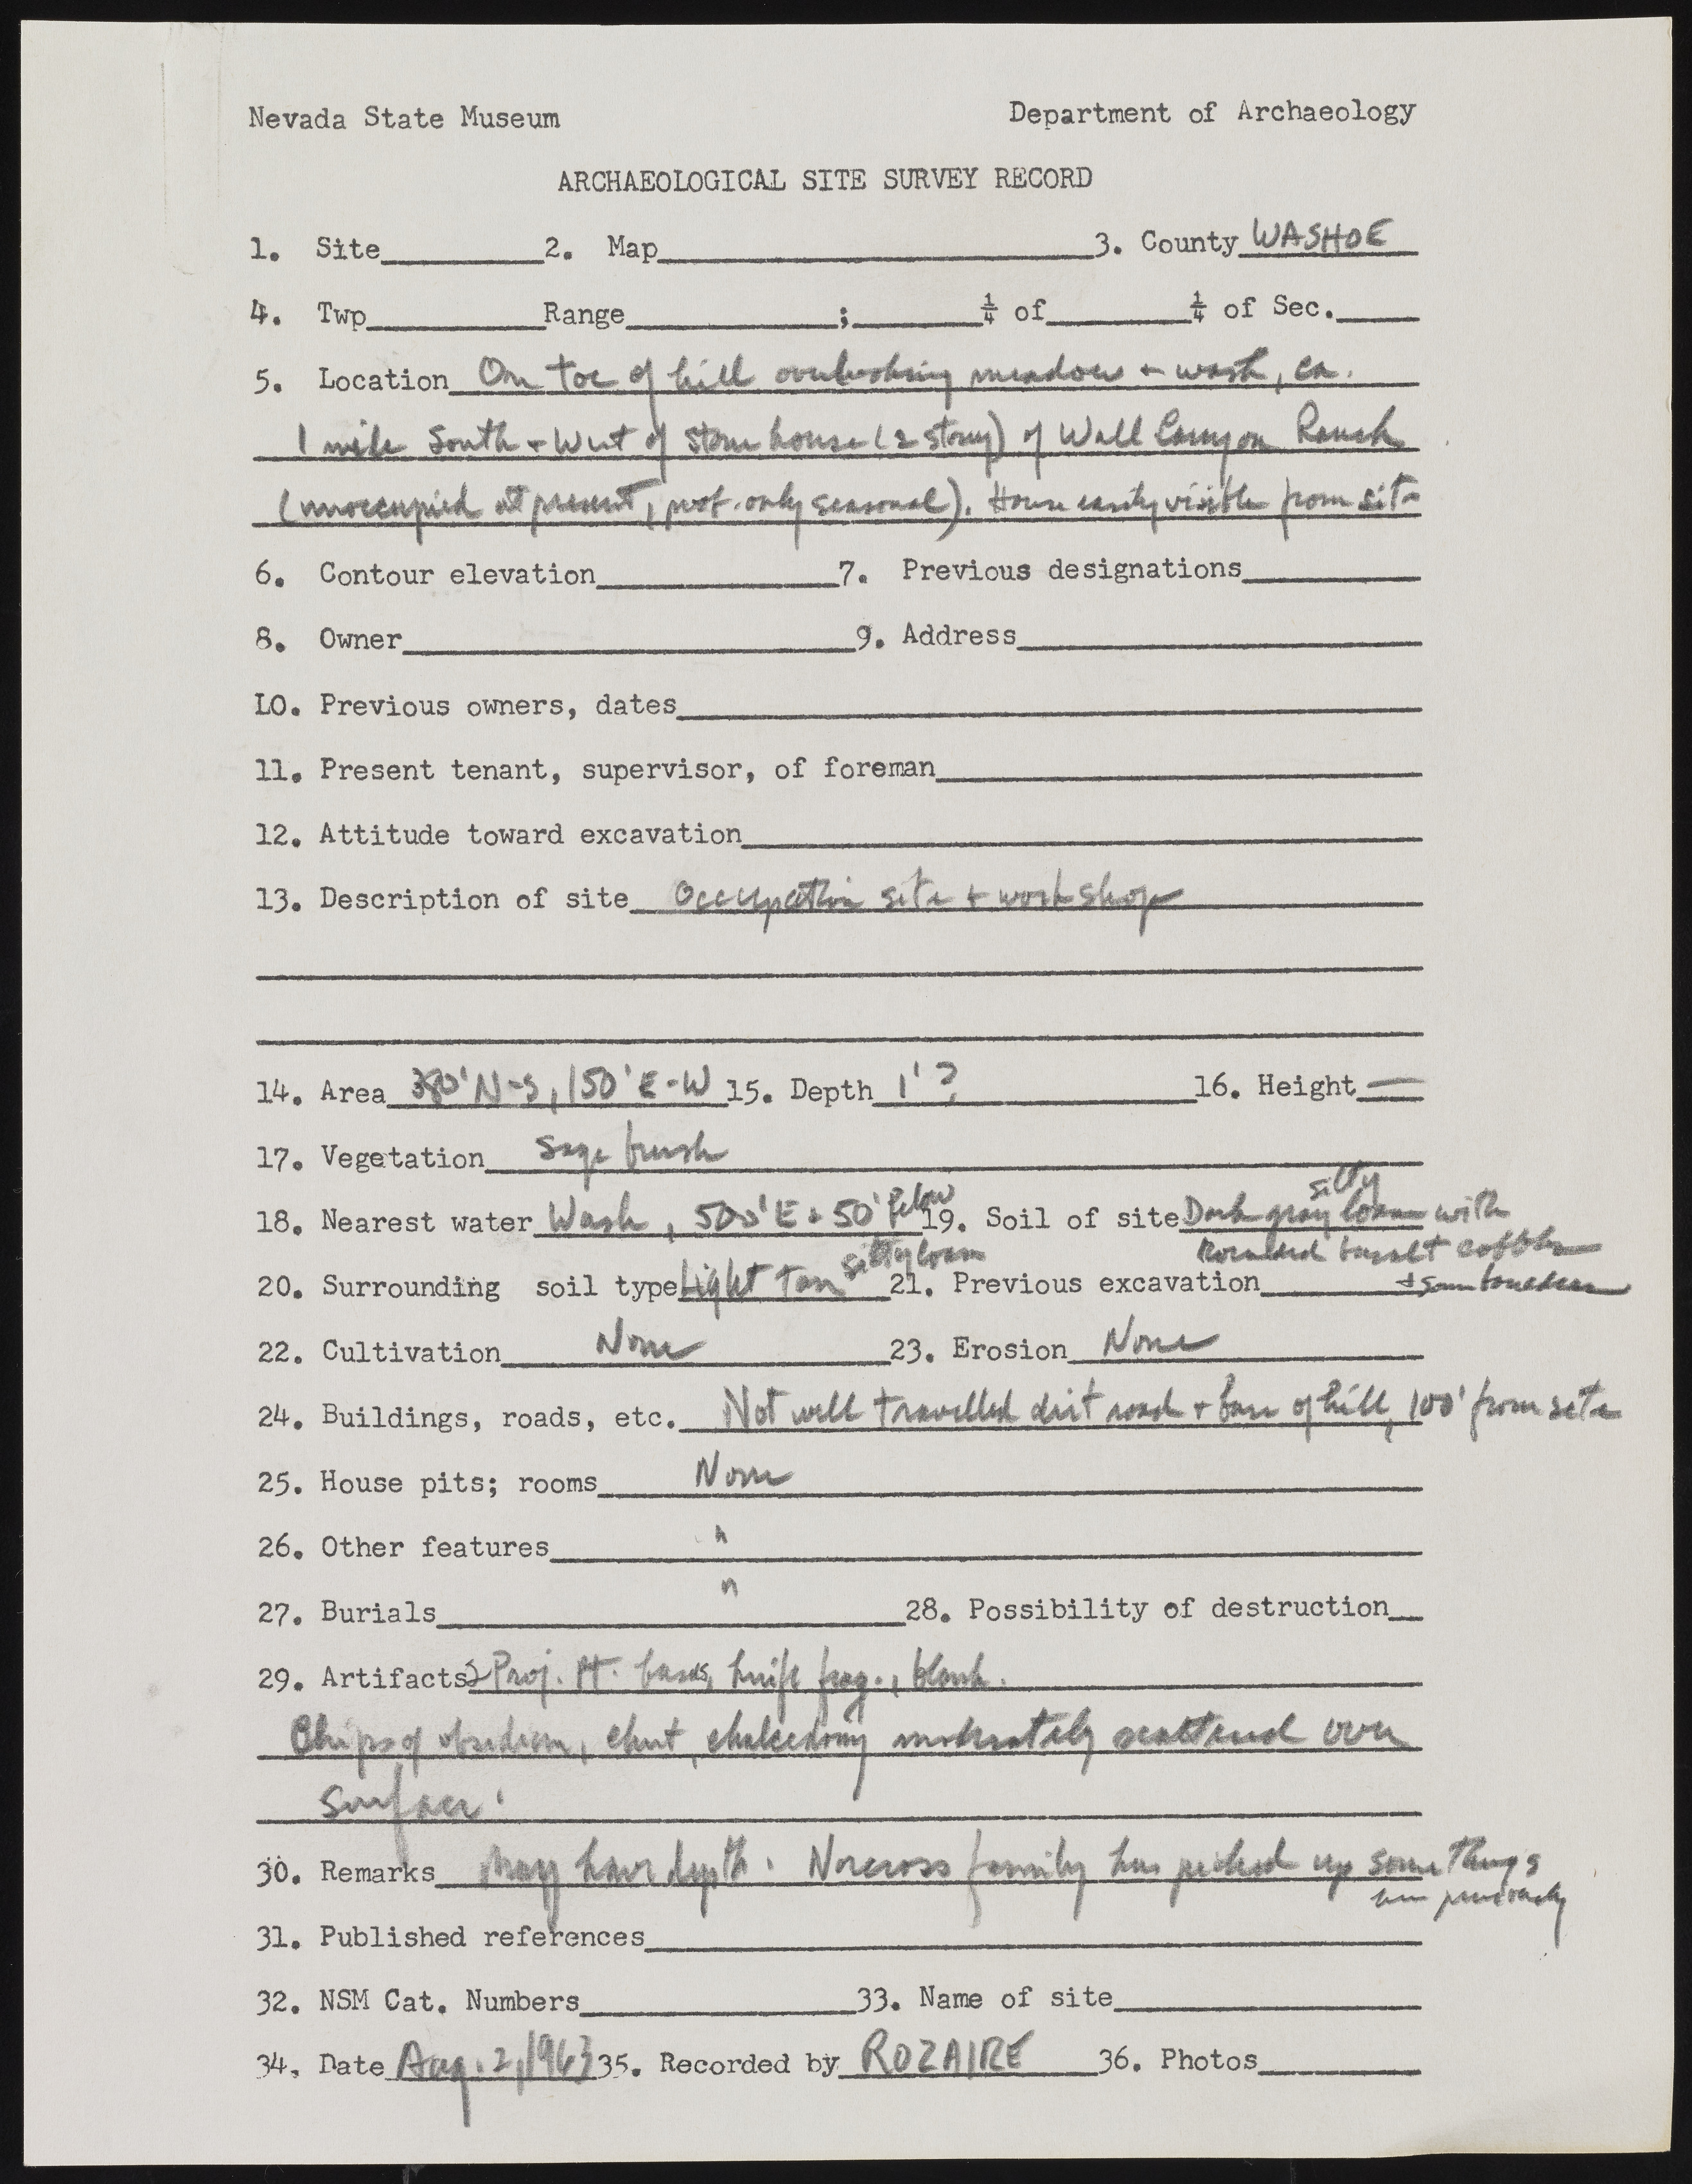 Nevada State Museum Department of Archaeology
ARCHAEOLOGICAL SITE SURVEY RECORD
1. Site________2. Map________3. County WASHOE
4. Twp________Range________;________¼ of________¼ of Sec.____
5. Location On toe of hill overlooking meadow + wash, ca.
1 mile South + West of stone house (2 story) of Wall Canyon Ranch
(unoccupied at present, prob. only seasonal). House easily visible from site
6. Contour elevation________7. Previous designations________
8. Owner________9. Address________
10. Previous owners, dates________
11. Present tenant, supervisor, of foreman________
12. Attitude toward excavation________
13. Description of site Occupation site + workshop
14. Area 'N-S, 150'E-W 15. Depth 1'? 16. Height —
17. Vegetation Sage brush
18. Nearest water Wash, 500'E + 50' below 19. Soil of site Dark gray silty loam with
rounded basalt cobbles
20. Surrounding soil type Light Tan silty loam 21. Previous excavation________ + some boulders
22. Cultivation None 23. Erosion None
24. Buildings, roads, etc. Not well travelled dirt road + base of hill, 100' from site
25. House pits; rooms None
26. Other features "
27. Burials " 28. Possibility of destruction__
29. Artifacts 2 Proj. Pt. bases, knife frag., blank.
Chips of obsidian, chert, chalcedony moderately scattered over
surface.
30. Remarks May have depth. Norcross family has picked up some things
here previously
31. Published references________
32. NSM Cat. Numbers________33. Name of site________
34. Date Aug. 2, 1963 35. Recorded by ROZAIRE 36. Photos________